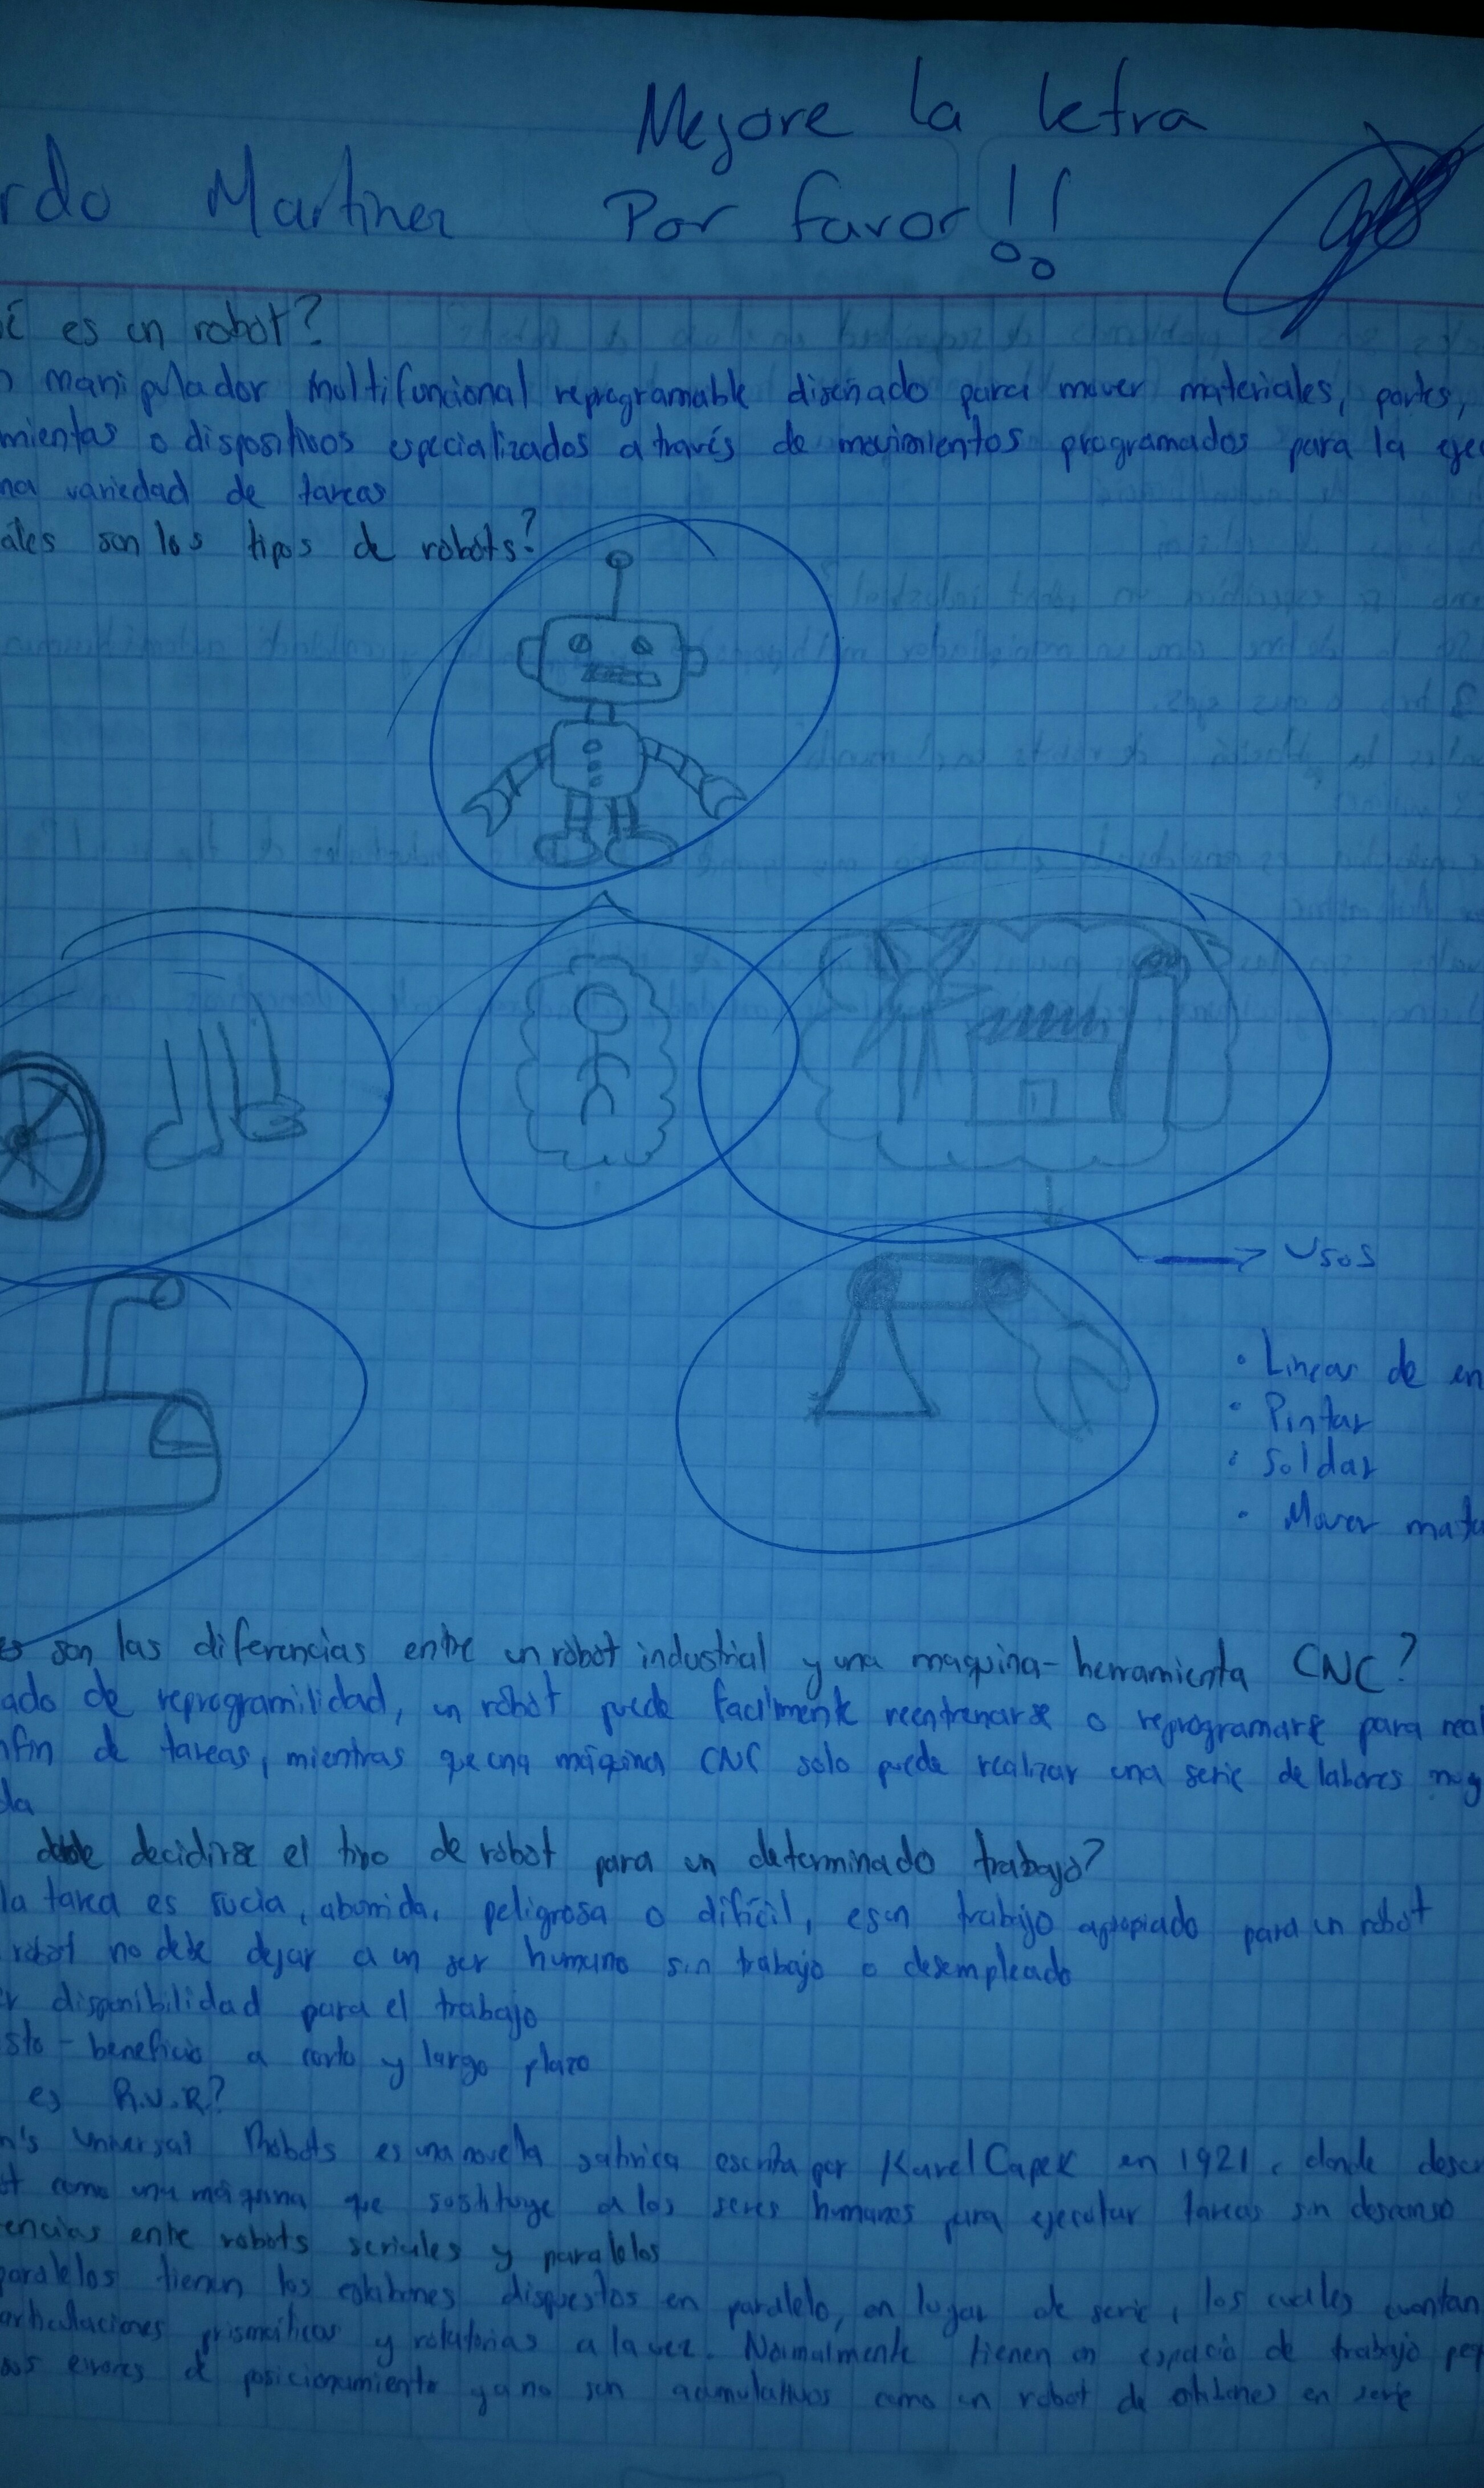 Mejore la letra
rdo Martinez Por favor!!
é es un robot?
manipulador multifuncional reprogramable diseñado para mover materiales, partes,
mientas o dispositivos especializados a través de movimientos programados para la eje
na variedad de tareas
ales son los tipos de robots?
Usos
• Lineas de en
• Pintar
• Soldar
• Mover mate
es son las diferencias entre un robot industrial y una maquina-herramienta CNC?
ado de reprogramilidad, un robot puede facilmente reentrenarse o reprogramarse para real
nfin de tareas, mientras que una máquina CNC solo puede realizar una serie de labores muy
da
debe decidirse el tipo de robot para un determinado trabajo?
la tarea es sucia, aburrida, peligrosa o dificil, es un trabajo apropiado para un robot
robot no debe dejar a un ser humano sin trabajo o desempleado
r disponibilidad para el trabajo
sto-beneficio a corto y largo plazo
es R.U.R?
n's Universal Robots es una novela satirica escrita por Karel Capek en 1921, donde descr
t como una máquina que sustituye a los seres humanos para ejecutar tareas sin descanso
encias entre robots seriales y paralelos
paralelos tienen los eslabones dispuestos en paralelo, en lugar de serie, los cuales cuentan
articulaciones prismáticas y rotatorias a la vez. Normalmente tienen un espacio de trabajo peq
sus errores de posicionamiento ya no son acumulativos como un robot de eslabones en serie